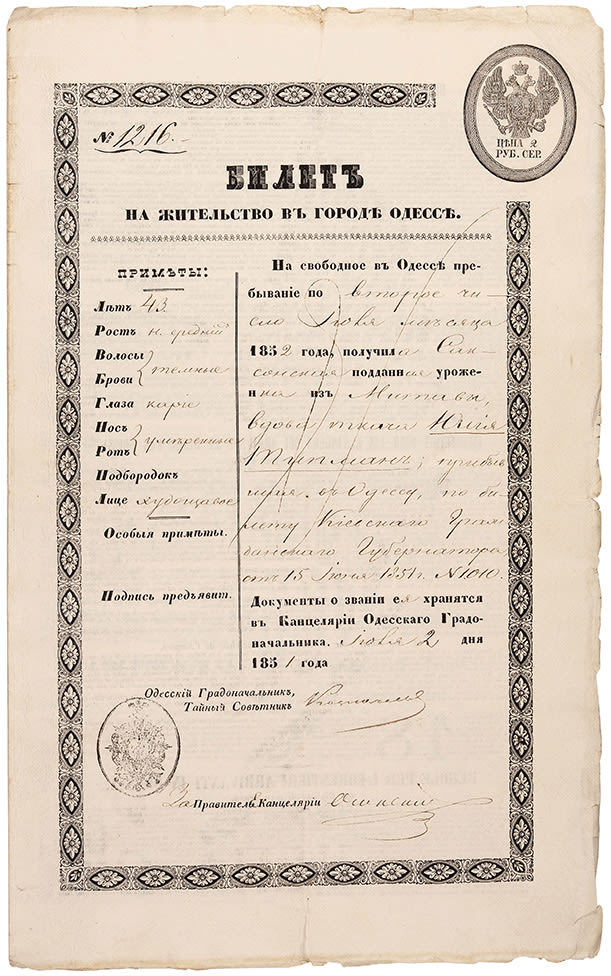 № 1216.
ЦѢНА 2
РУБ. СЕР.
БИЛЕТЪ
НА ЖИТЕЛЬСТВО ВЪ ГОРОДѢ ОДЕССѢ.
ПРИМѢТЫ:
Лѣтъ 43
Ростъ н. средній
Волосы
Брови } темные
Глаза карie
Носъ
Ротъ } умѣренные
Подбородокъ
Лице худощавое
Особыя примѣты.
Подпись предъявит.
На свободное въ Одессѣ пре-
бываніе по второе чи-
сло Іюля мѣсяца
1852 года, получила Сак-
сонская подданная уроже-
нка изъ Митавы,
вдова ткача Юлія
прибыв
шая въ Одессу, по би-
лету Кіевскаго Граж
данскаго Губернатора
отъ 15 Іюня 1851 г. № 1010.
Документы о званіи ея хранятся
въ Канцеляріи Одесскаго Градо-
начальника. Іюля 2 дня
1851 года
Одесскій Градоначальникъ,
Тайный Совѣтникъ
За Правителя Канцеляріи